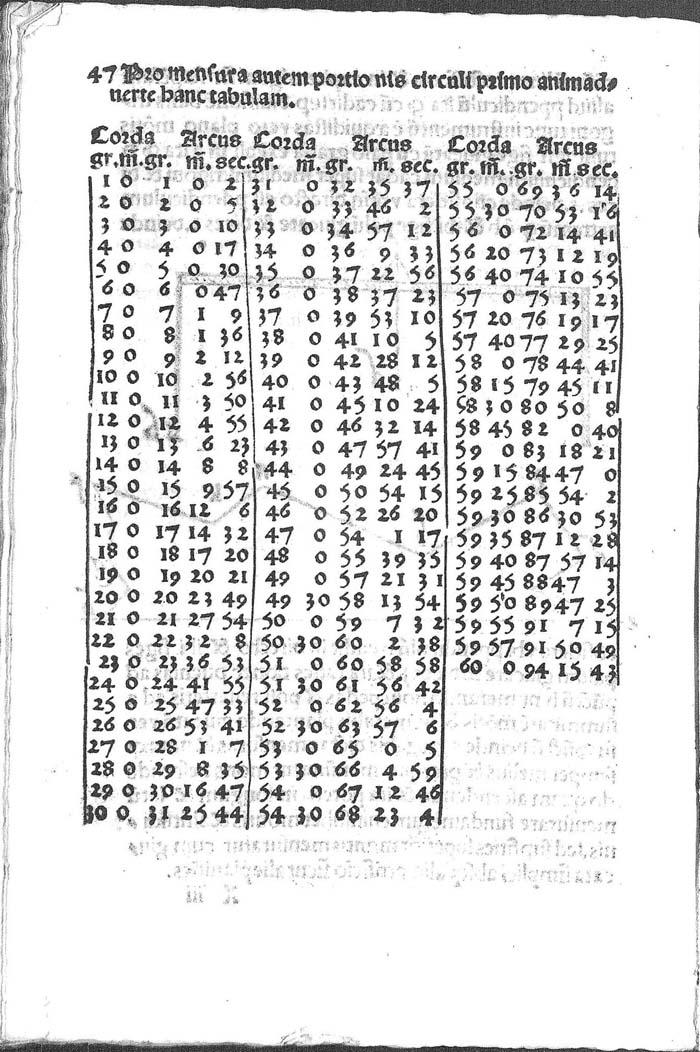 47 Pro mensura autem portio nis circuli primo animad⸗
uerte hanc tabulam.
Corda Arcus Corda Arcus Corda Arcus
gr. m̄. gr. m̄. sec. gr. m̄. gr. m̄. sec. gr. m̄. gr. m̄. sec.
1 0 1 0 2 31 0 32 35 37 55 0 69 36 14
2 0 2 0 5 32 0 33 46 2 55 30 70 53 16
3 0 3 0 10 33 0 34 57 12 56 0 72 14 41
4 0 4 0 17 34 0 36 9 33 56 20 73 12 19
5 0 5 0 30 35 0 37 22 56 56 40 74 10 55
6 0 6 0 47 36 0 38 37 23 57 0 75 13 23
7 0 7 1 9 37 0 39 53 10 57 20 76 19 17
8 0 8 1 36 38 0 41 10 5 57 40 77 29 25
9 0 9 2 12 39 0 42 28 12 58 0 78 44 41
10 0 10 2 56 40 0 43 48 5 58 15 79 45 11
11 0 11 3 50 41 0 45 10 24 58 30 80 50 8
12 0 12 4 55 42 0 46 32 14 58 45 82 0 40
13 0 13 6 23 43 0 47 57 41 59 0 83 18 21
14 0 14 8 8 44 0 49 24 45 59 15 84 47 0
15 0 15 9 57 45 0 50 54 15 59 25 85 54 2
16 0 16 12 6 46 0 52 26 20 59 30 86 30 53
17 0 17 14 32 47 0 54 1 17 59 35 87 12 28
18 0 18 17 20 48 0 55 39 35 59 40 87 57 14
19 0 19 20 21 49 0 57 21 31 59 45 88 47 3
20 0 20 23 49 49 30 58 13 54 59 50 89 47 25
21 0 21 27 54 50 0 59 7 32 59 55 91 7 15
22 0 22 32 8 50 30 60 2 38 59 57 91 50 49
23 0 23 36 53 51 0 60 58 58 60 0 94 15 43
24 0 24 41 55 51 30 61 56 42
25 0 25 47 33 52 0 62 56 4
26 0 26 53 41 52 30 63 57 6
27 0 28 1 7 53 0 65 0 5
28 0 29 8 35 53 30 66 4 59
29 0 30 16 47 54 0 67 12 46
30 0 31 25 44 54 30 68 23 4